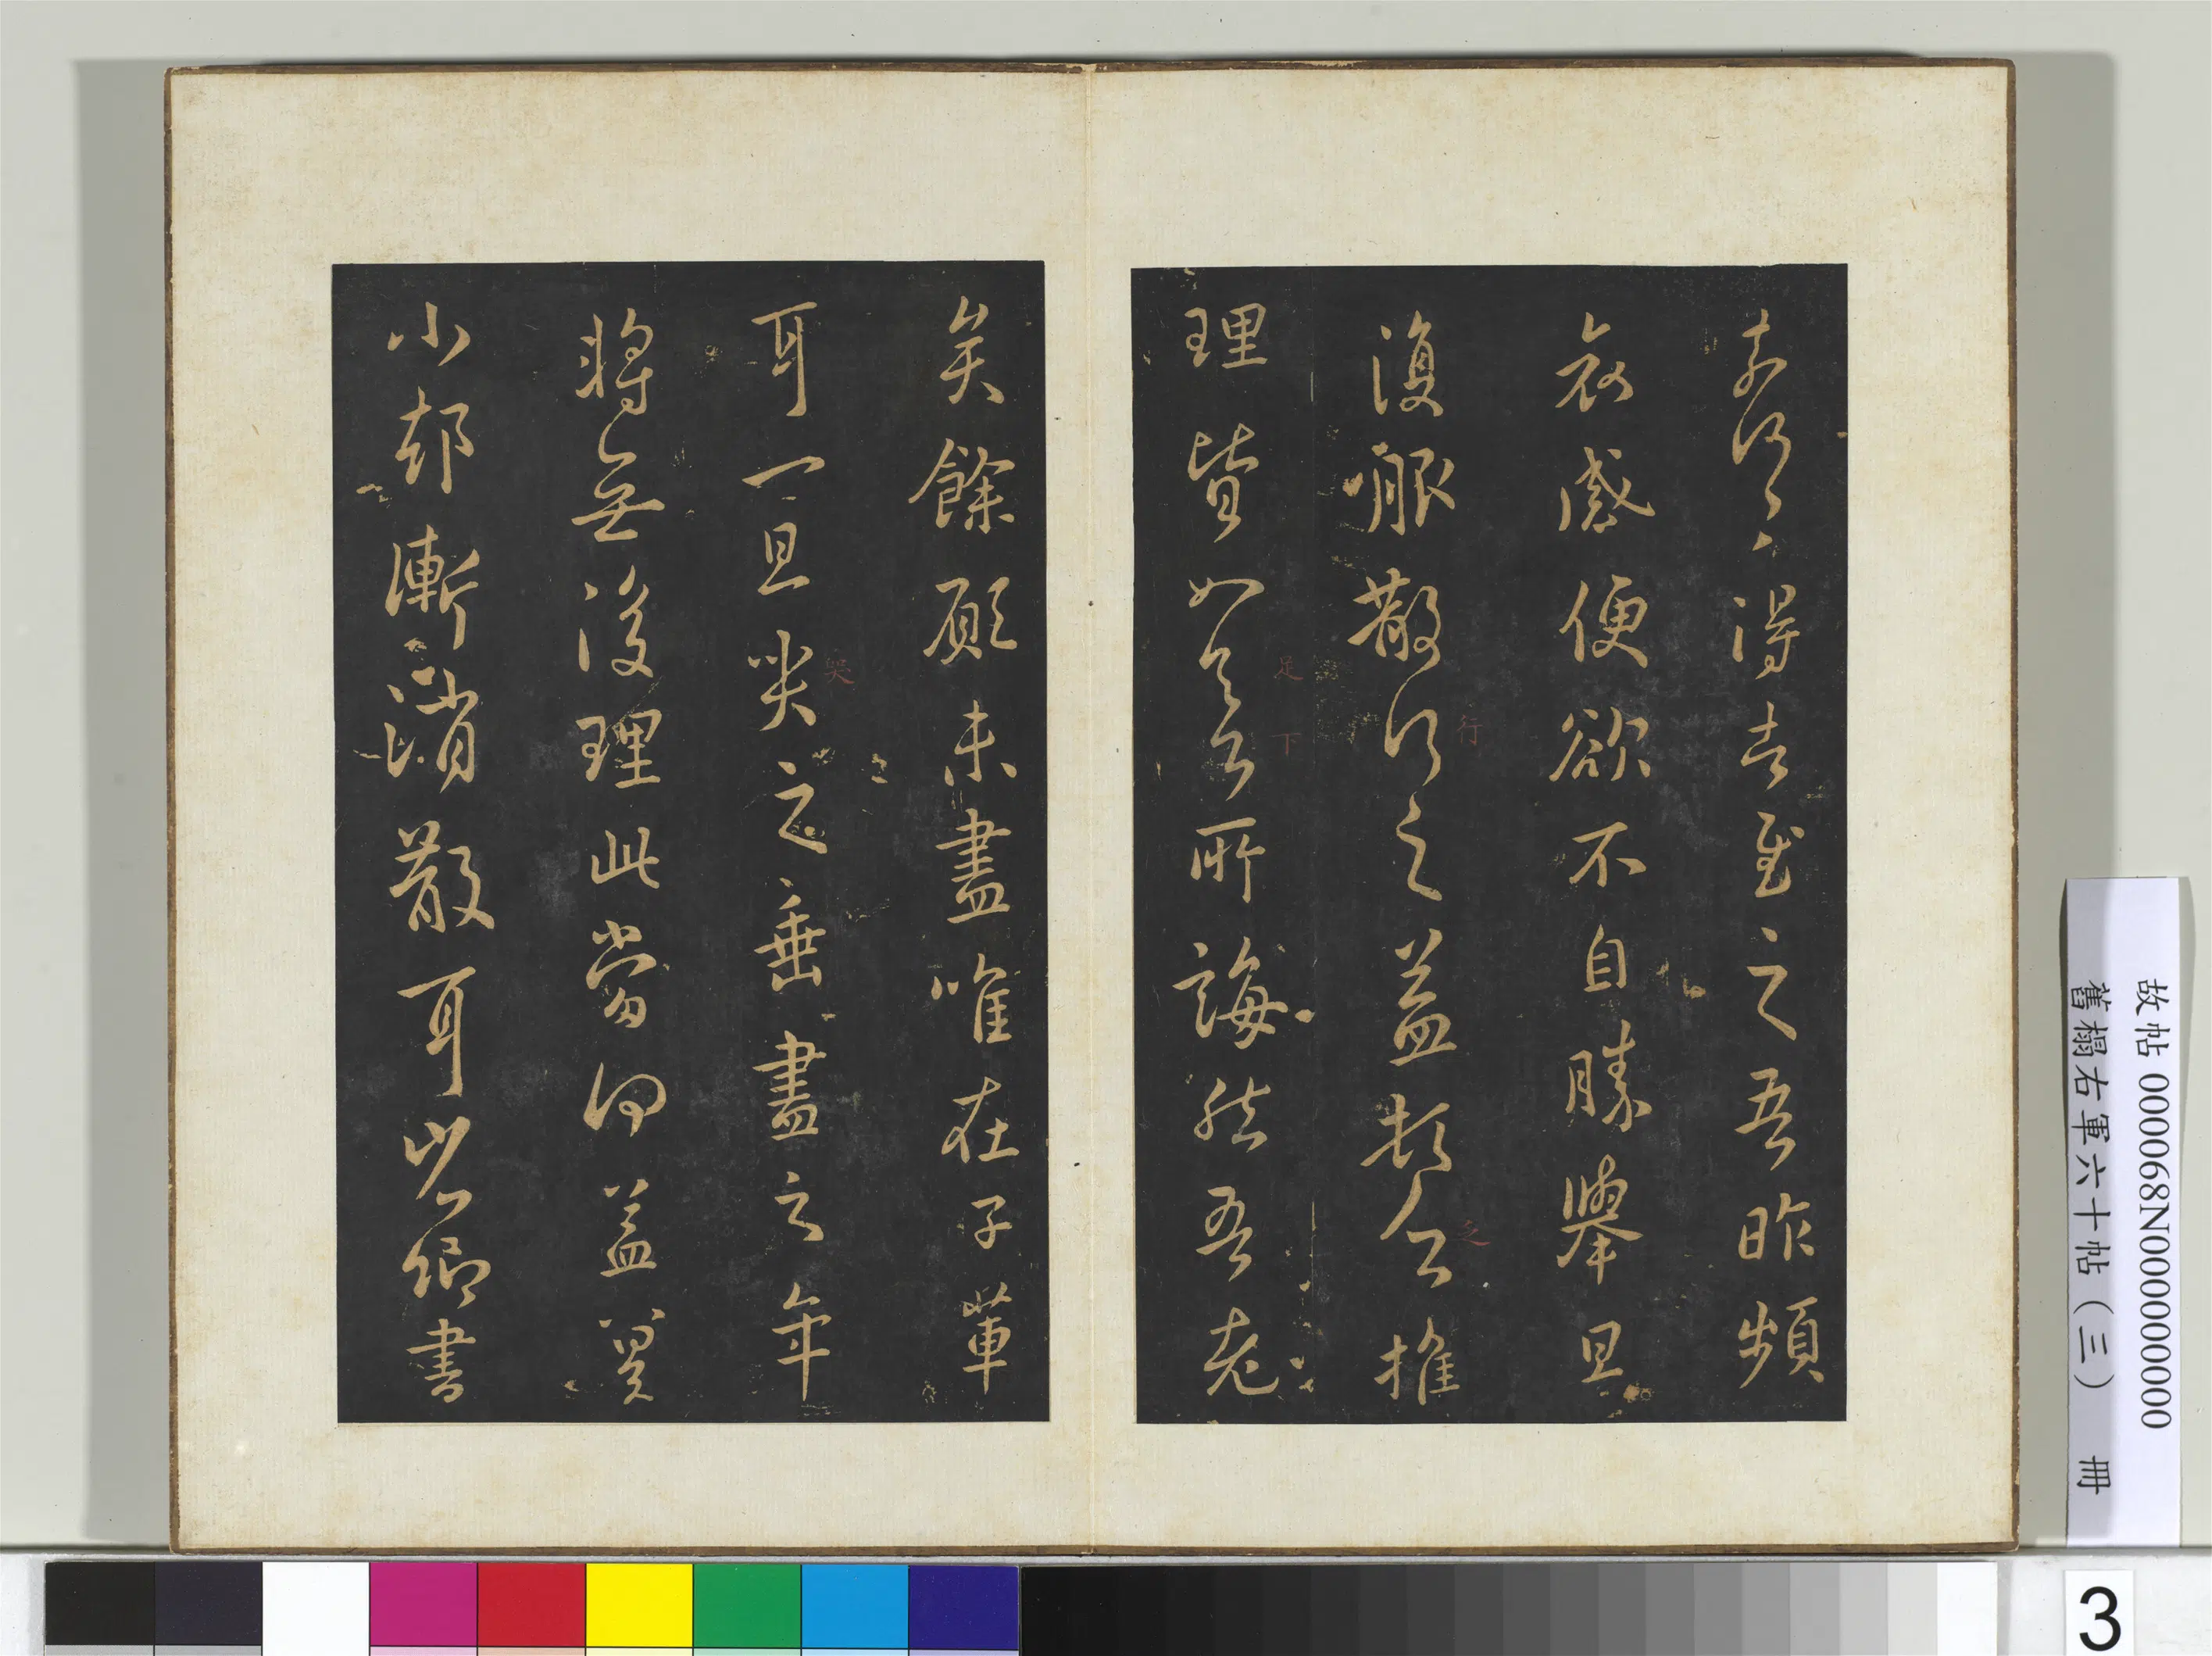 奈何〻〻得之吾昨頻
哀感便欲不自勝舉旦
復服散行之益頓乏推
理皆如足下所誨然吾老
矣餘願未盡唯在子輩
耳一旦哭之垂盡之年
將無復理此當何益冀
小却漸消散耳省卿書
行
乏
足下
哭
故帖 000068N000000000
舊榻右軍六十帖(三) 冊
3